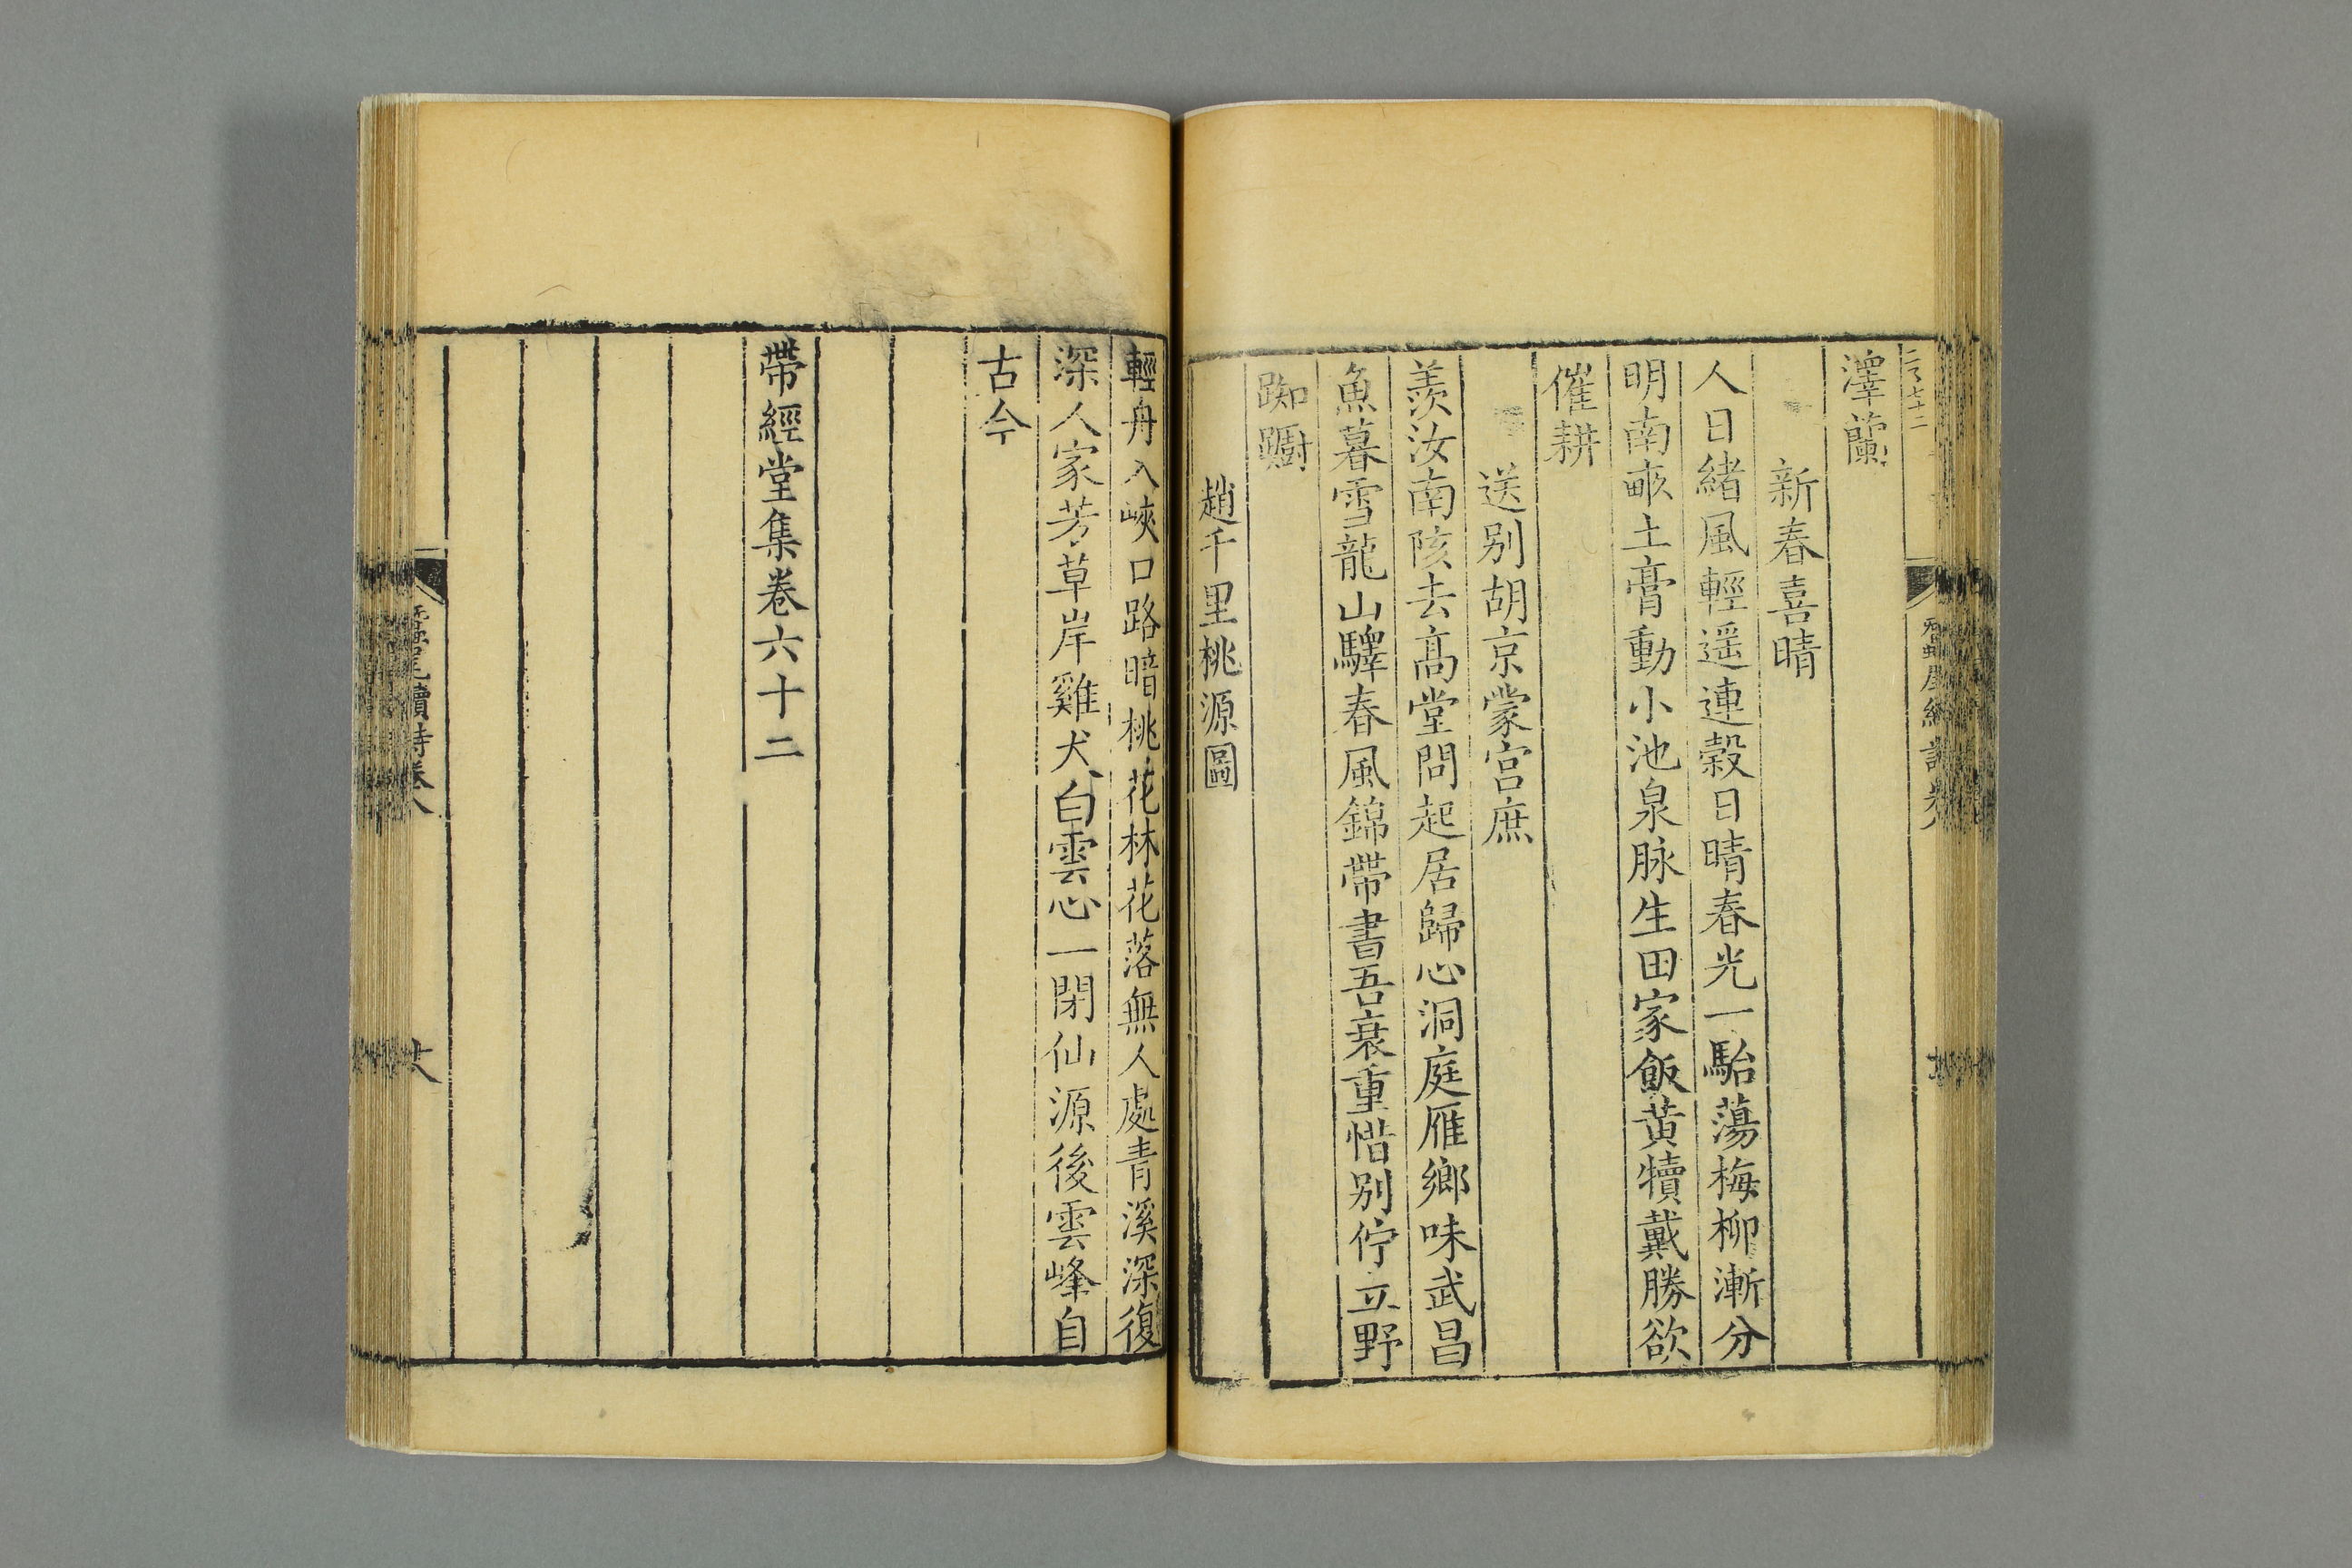 澤蘭
新春喜晴
人日緒風輕遥連穀日晴春光一駘蕩梅柳漸分
明南畝土膏動小池泉脉生田家飯黄犢戴勝欲
催耕
送别胡京蒙宫庶
羨汝南陔去髙堂問起居歸心洞庭雁鄉味武昌
魚暮雪龍山驛春風錦帶書吾衰重惜别佇立野
踟躕
趙千里桃源圖
輕舟入峽口路暗桃花林花落無人處青溪深復
深人家芳草岸雞犬白雲心一閉仙源後雲峰自
古今
帶經堂集卷六十二
蠶尾續詩卷八